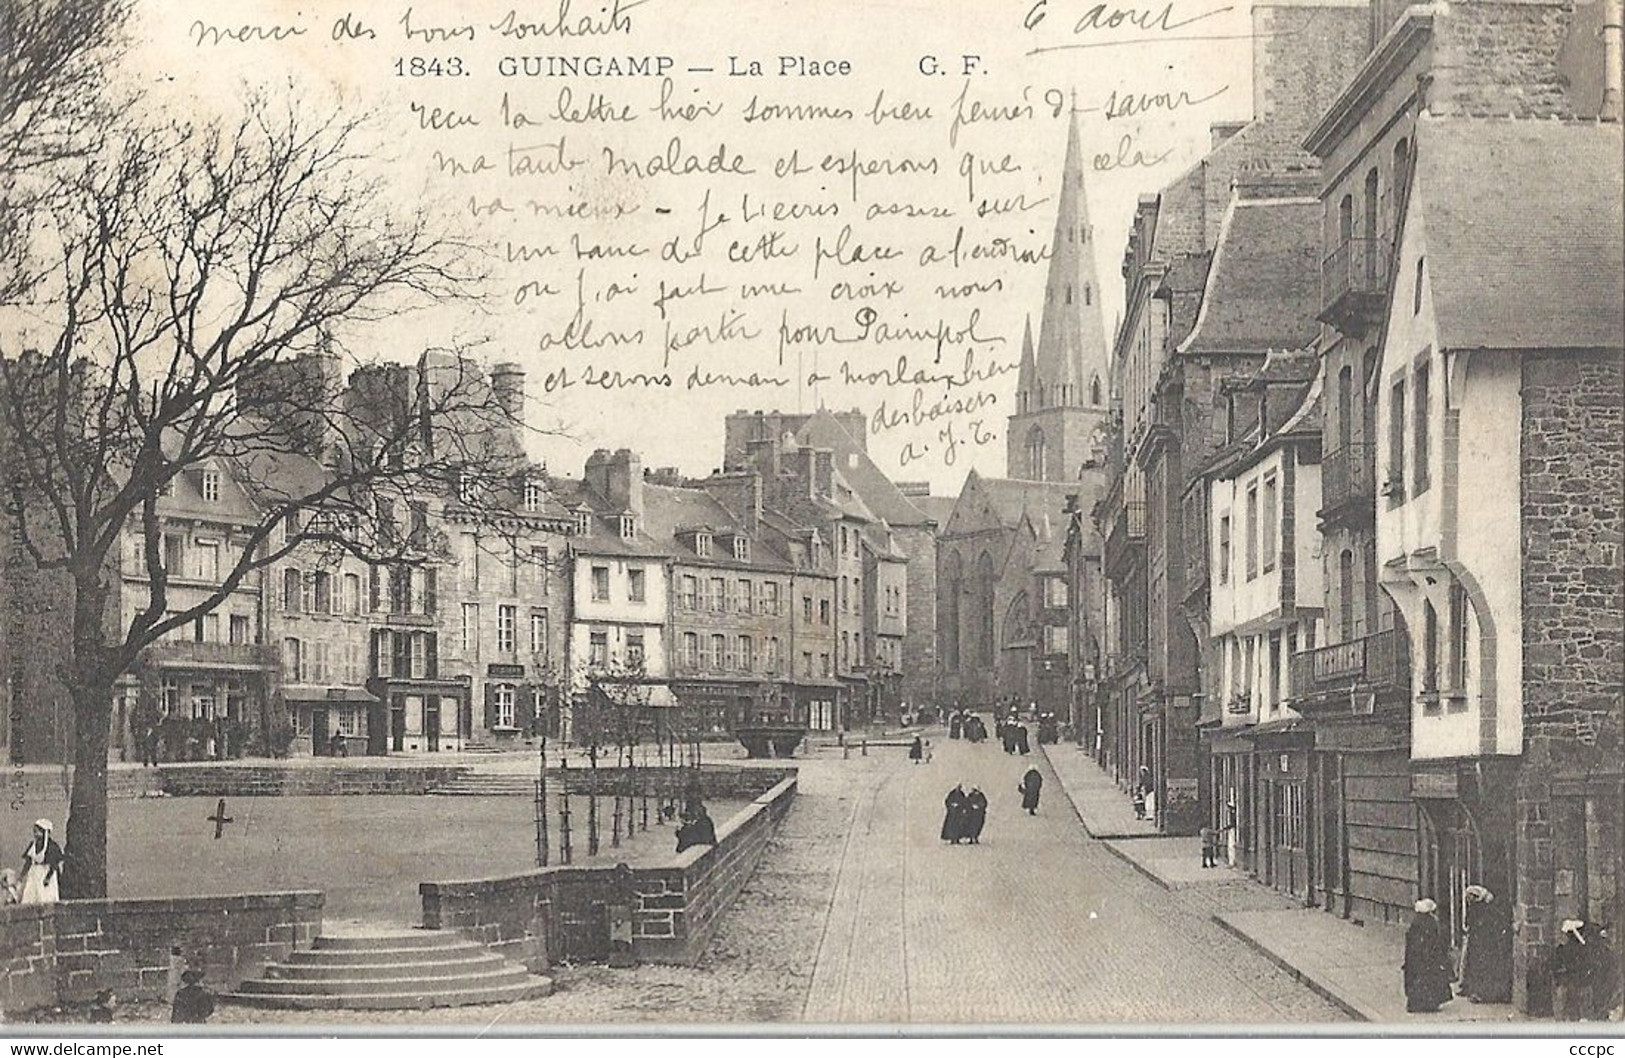 merci des bons souhaits
6 aout
1843. GUINGAMP — La Place G. F.
recu ta lettre hier sommes bien peinés de savoir
ma tante malade et esperons que cela
va mieux - Je t'ecris assise sur
un banc de cette place a l'endroit
ou j'ai fait une croix nous
allons partir pour Paimpol
et serons demain a Morlaix bien
des baisers
a. J. T.
cccpc